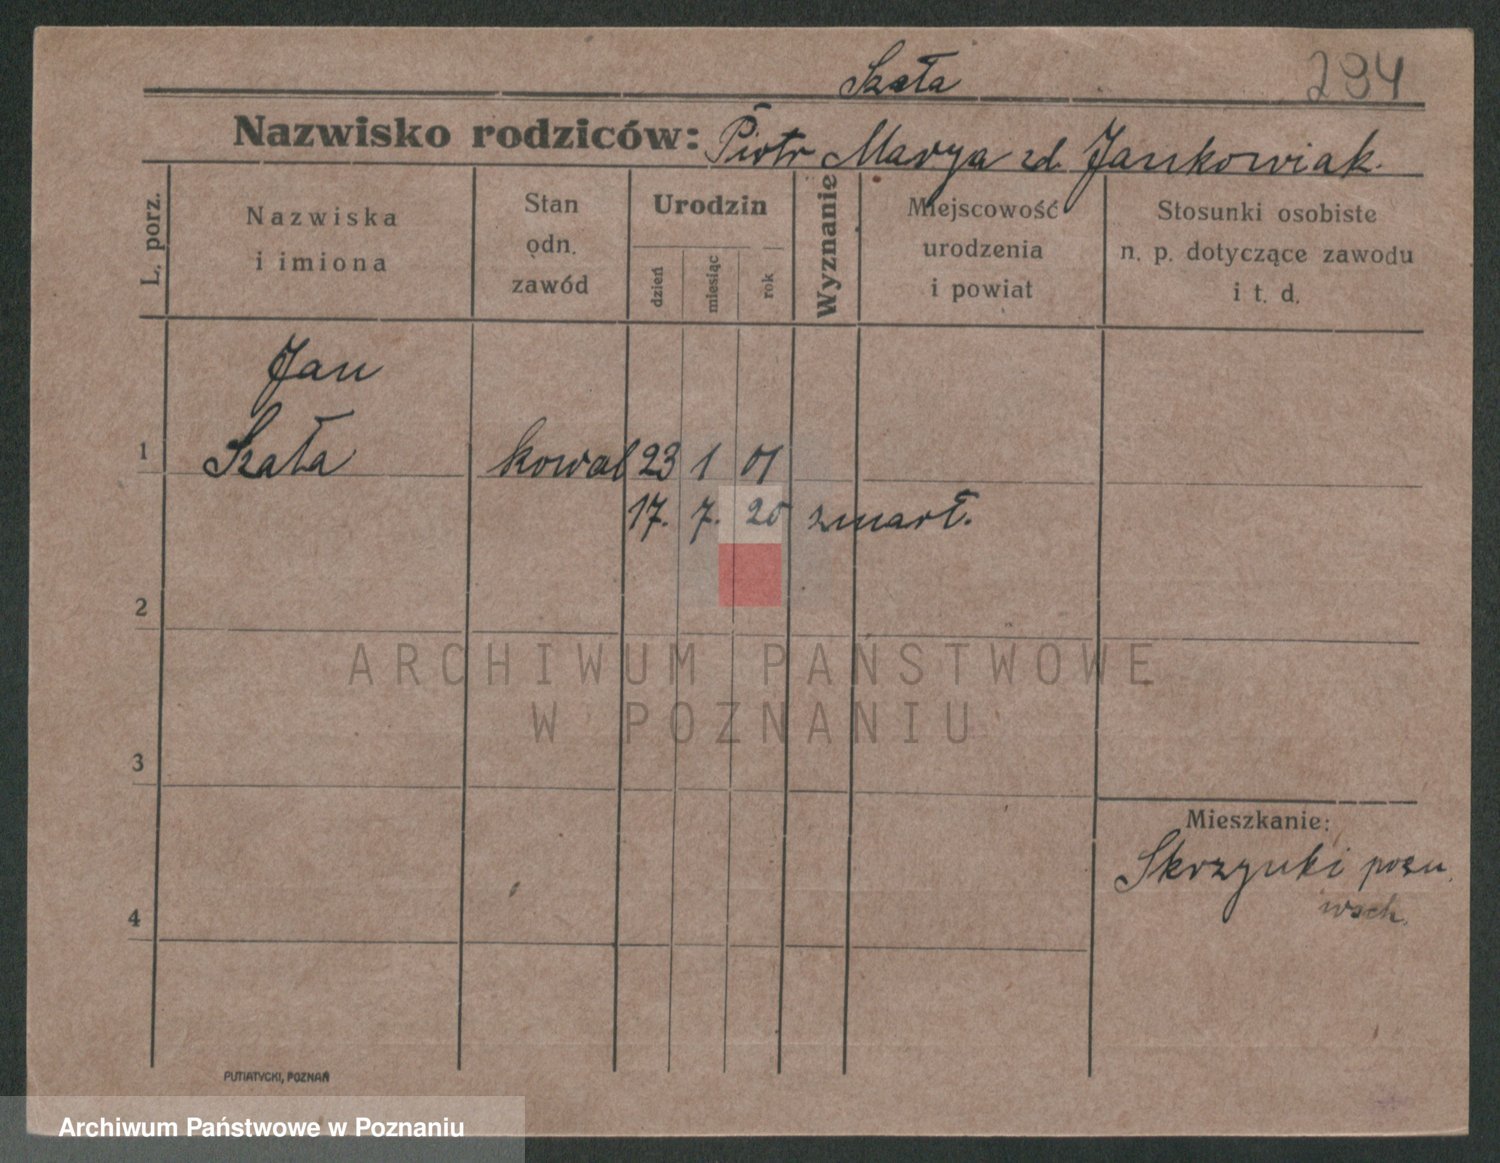 Szała
294
Nazwisko rodziców: Piotr Marya zd. Jankowiak.
L. porz.
Nazwiska
i imiona
Stan
odn.
zawód
Urodzin
dzień
miesiąc
rok
Wyznanie
Miejscowość
urodzenia
i powiat
Stosunki osobiste
n. p. dotyczące zawodu
i t. d.
Jan
1 Szała kowal 23 1 01
17. 7. 20 zmarł.
2
ARCHIWUM PAŃSTWOWE
W POZNANIU
3
Mieszkanie:
Skrzynki pozn.
wsch.
4
PUTIATYCKI, POZNAŃ
Archiwum Państwowe w Poznaniu